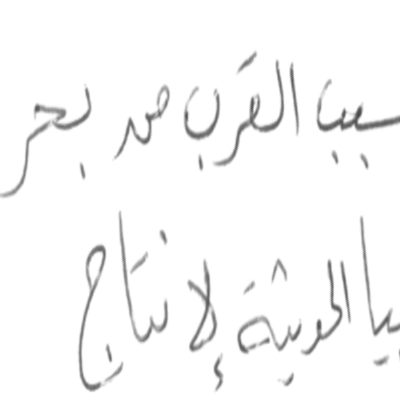 بسبب القرب من بحر
الحديثة لإنتاج